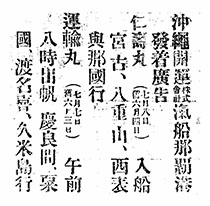 沖繩開運株式會社滊船那覇港
發着廣告
仁壽丸（七月八日舊六月四日）入船
宮古、八重山、西表
與那國行
運輸丸（七月七日舊六月三日）午前
八時出帆慶良間、粟
國、渡名喜、久米島行